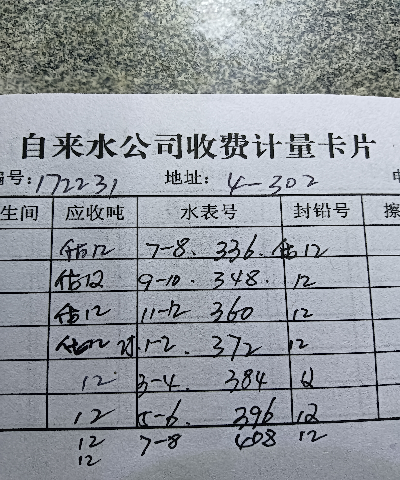 自来水公司收费计量卡片
编号:172231 地址: 4-302
生间 应收吨 水表号 封铅号
估12 7-8. 336. 估12
估12 9-10. 348. 12
估12 11-12 360 12
估12 1-2. 372 12
12 3-4. 384 12
12 5-6. 396 12
12 7-8 408 12
12